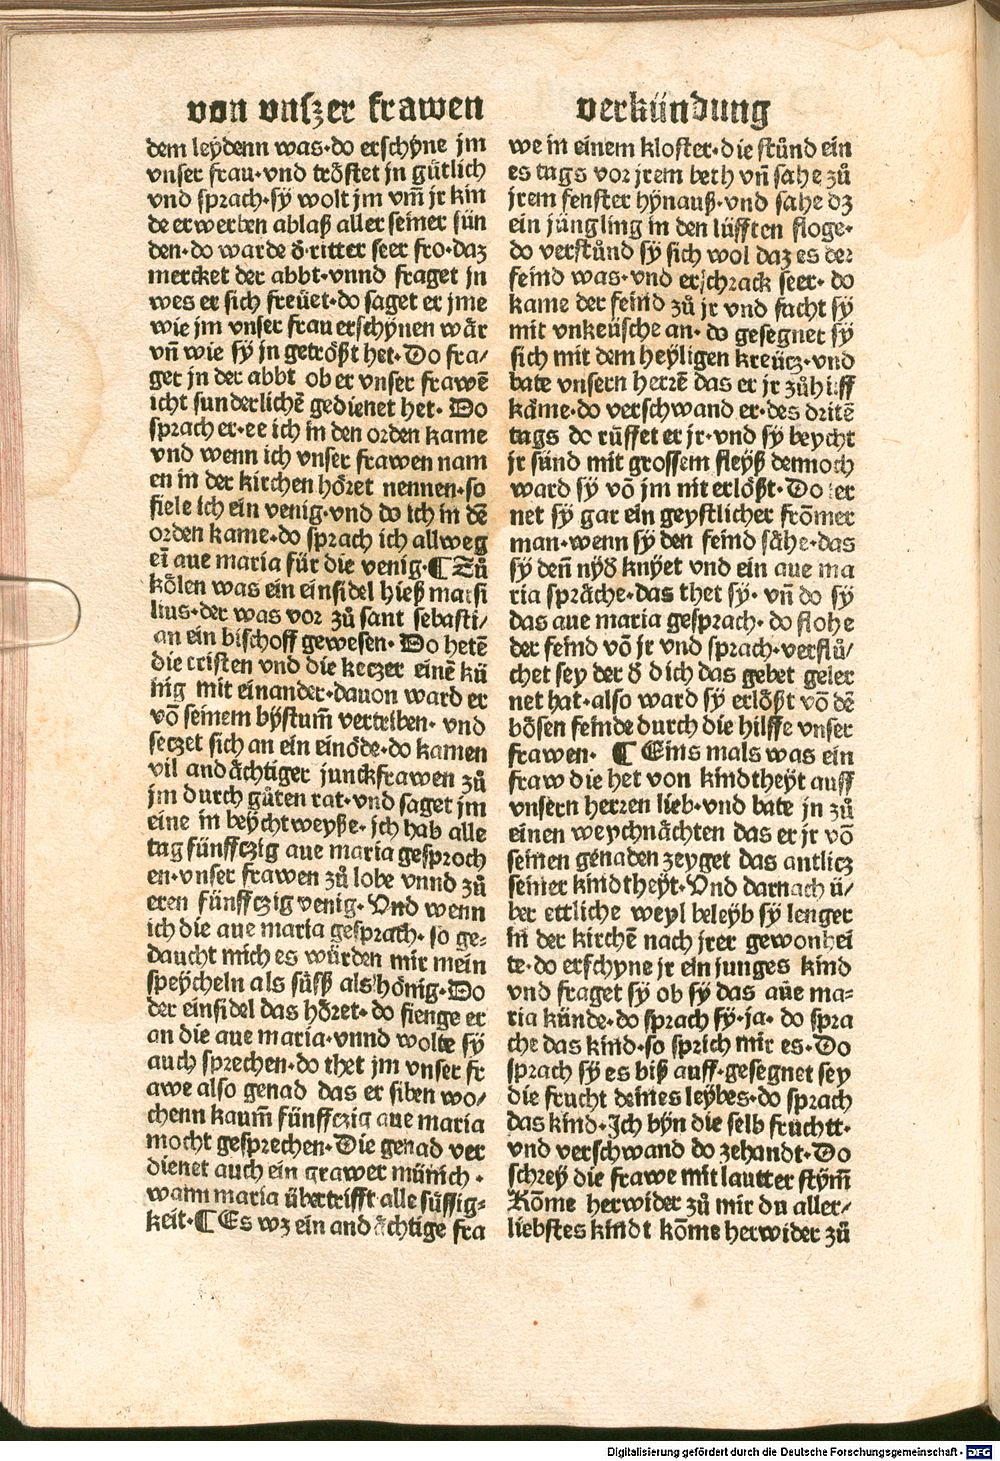 von vnſzer frawen verkündung
dem leydenn was·do erſchyne jm
vnſer frau·vnd tröſtet jn gütlich
vnd ſprach·ſy wolt jm vm̄ jr kin
de erwerben ablaß aller ſeiner ſün
den·do warde d̕·ritter ſeer fro·daz
mercket der abbt·vnnd fraget jn
wes er ſich freüet·do ſaget er jme
wie jm vnſer frau erſchynen wär
vn̄ wie ſy jn getrößt het·Do fra/
get jn der abbt ob er vnſer frawē
icht ſunderlichē gedienet het· Do
ſprach er·ee ich in den orden kame
vnd wenn ich vnſer frawen nam
en in der kirchen höret nennen·ſo
fiele ich ein venig·vnd do ich in dē
orden kame·do ſprach ich allweg
eī aue maria für die venig·¶ Zů
kölen was ein einſidel hieß marſi
lius·der was vor zů ſant ſebaſti/
an ein biſchoff geweſen· Do hetē
die criſten vnd die keczer einē kü
nig mit einander·dauon ward er
vō ſeinem byſtum̄ vertriben· vnd
ſeczet ſich an ein einöde·do kamen
vil andächtiger junckfrawen zů
jm durch gůten rat·vnd ſaget jm
eine in beychtweyße·ich hab alle
tag fünffczig aue maria geſproch
en·vnſer frawen zů lobe vnnd zů
eren fünffczig venig·Vnd wenn
ich die aue maria geſprach·ſo ge⸗
daucht mich es würden mir mein
ſpeycheln als ſüſß als hönig·Do
der einſidel das höret·do fienge er
an die aue maria·vnnd wolte ſy
auch ſprechen·do thet jm vnſer fr
awe alſo genad das er ſiben wo/
chenn kaum̄ fünffczig aue maria
mocht geſprechen·Die genad ver
dienet auch ein grawer münich ·
wann maria übertrifft alle ſüſſig⸗
keit·¶ Es wz ein andächtige fra
we in einem kloſter·die ſtůnd ein
es tags vor jrem beth vn̄ ſahe zů
jrem fenſter hynauß·vnd ſahe dz
ein jüngling in den lüfften floge·
do verſtůnd ſy ſich wol daz es der
feind was·vnd erſchrack ſeer· do
kame der feind zů jr vnd facht ſy
mit vnkeüſche an· do geſegnet ſy
ſich mit dem heyligen kreücz·vnd
bate vnſern herrē das er jr zů hilff
käme·do verſchwand er·des dritē
tags do rüffet er jr·vnd ſy beycht
jr ſünd mit groſſem fleyß dennoch
ward ſy vō jm nit erlößt·Do ler
net ſy gar ein geyſtlicher frōmer
man·wenn ſy den feind ſähe·das
ſy den̄ nyd̕ knyet vnd ein aue ma
ria ſpräche·das thet ſy· vn̄ do ſy
das aue maria geſprach· do flohe
der feind vō jr vnd ſprach·verflů/
chet ſey der d̕ dich das gebet geler
net hat·alſo ward ſy erlößt vō dē
böſen feinde durch die hilffe vnſer
frawen· ¶ Eins mals was ein
fraw die het von kindtheyt auff
vnſern herren lieb·vnd bate jn zů
einen weychnächten das er jr vō
ſeinen genaden zeyget das antlicz
ſeiner kindtheyt·Vnd darnach ü/
ber ettliche weyl beleyb ſy lenger
in der kirchē nach jrer gewonhei
te·do erſchyne jr ein junges kind
vnd fraget ſy ob ſy das aue ma⸗
ria künde·do ſprach ſy·ja· do ſpra
che das kind·ſo ſprich mir es·Do
ſprach ſy es biß auff·geſegnet ſey
die frucht deines leybes·do ſprach
das kind·Ich byn die ſelb fruchtt·
vnd verſchwand do zehandt·Do
ſchrey die frawe mit lautter ſtym̄
Kōme herwider zů mir du aller/
liebſtes kindt kōme herwider zů
Digitalisierung gefördert durch die Deutsche Forschungsgemeinschaft - DFG